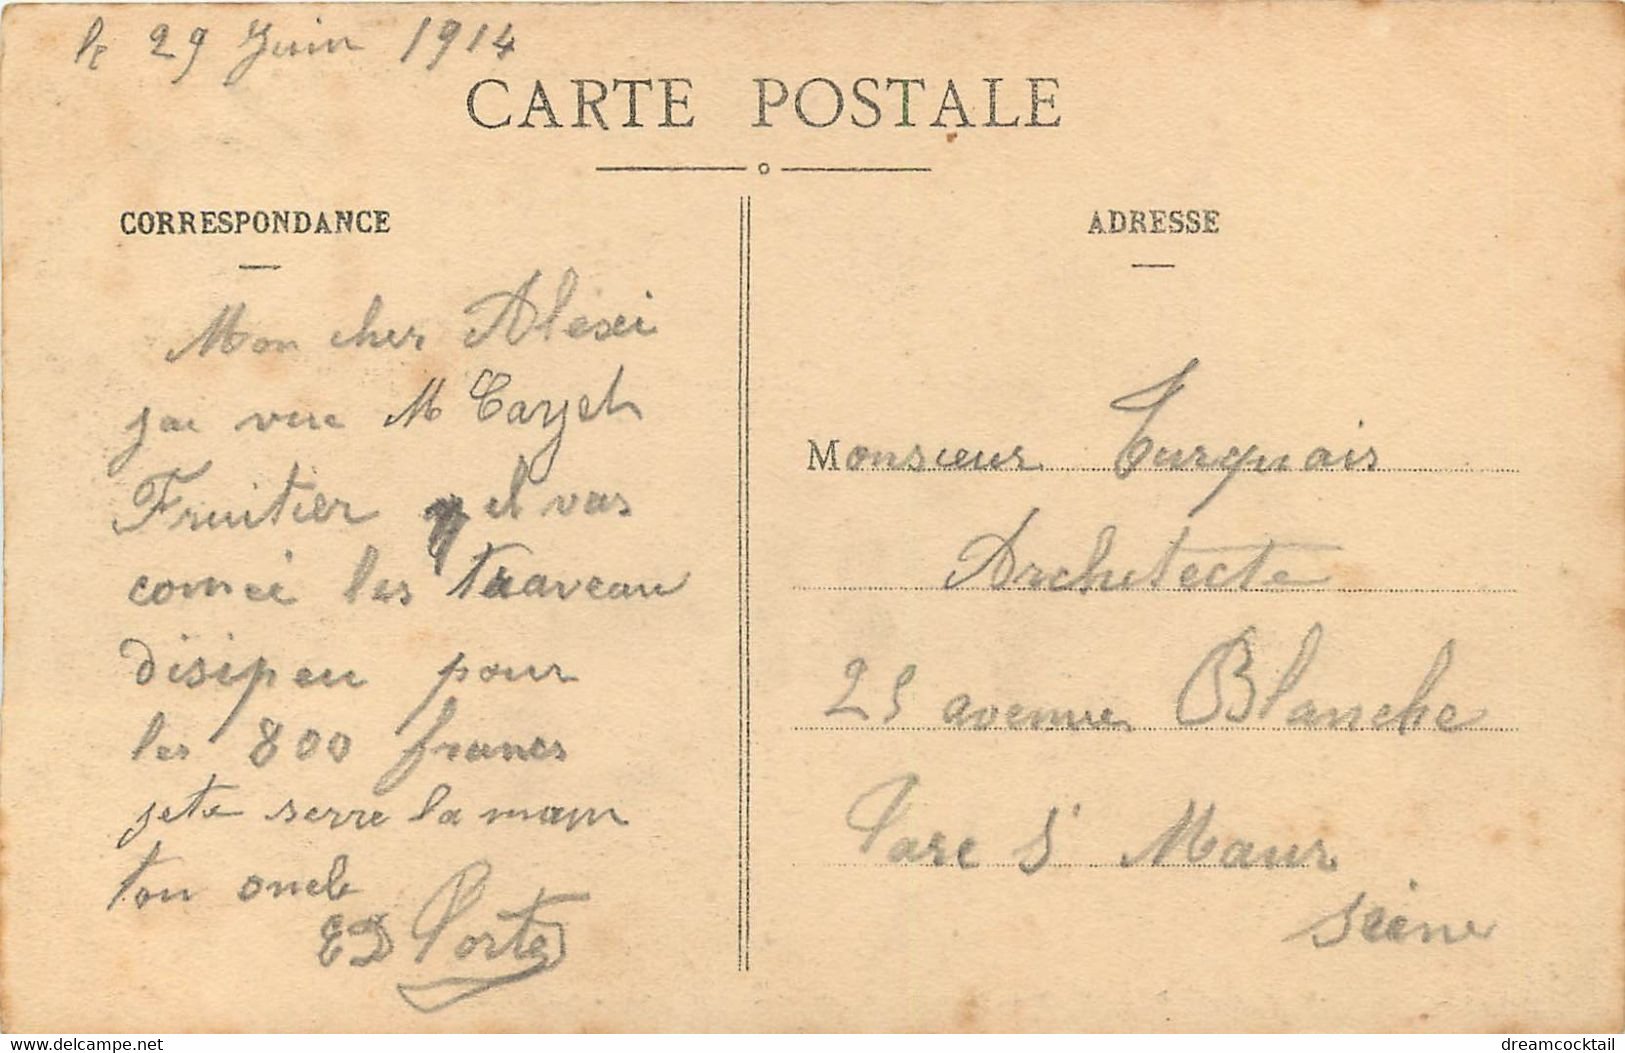 le 29 Juin 1914
CARTE POSTALE
CORRESPONDANCE
Mon cher Alexi
jai vue M Cayet
Fruitier il vas
comei les traveau
disipeu pour
les 800 francs
jete serre la main
ton oncle
ED Porte
ADRESSE
Monsieur Turquais
Architecte
25 avenue Blanche
Parc St Maur
Seine
www.delcampe.net
dreamcocktail